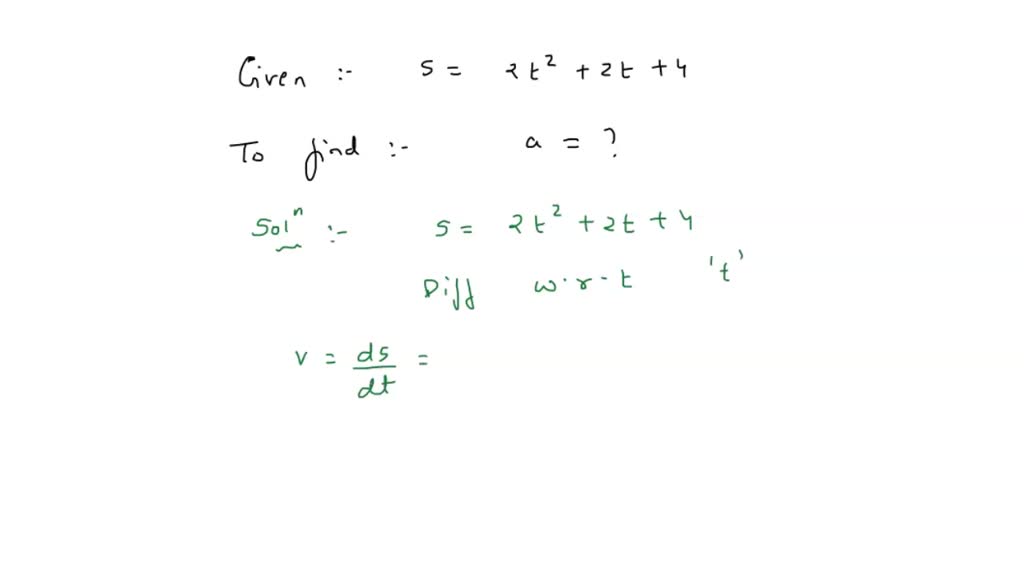 Given :- s = 2t² + 2t + 4
To find :- a = ?
Solⁿ :- s = 2t² + 2t + 4
Diff w.r.t 't'
v = ds/dt =